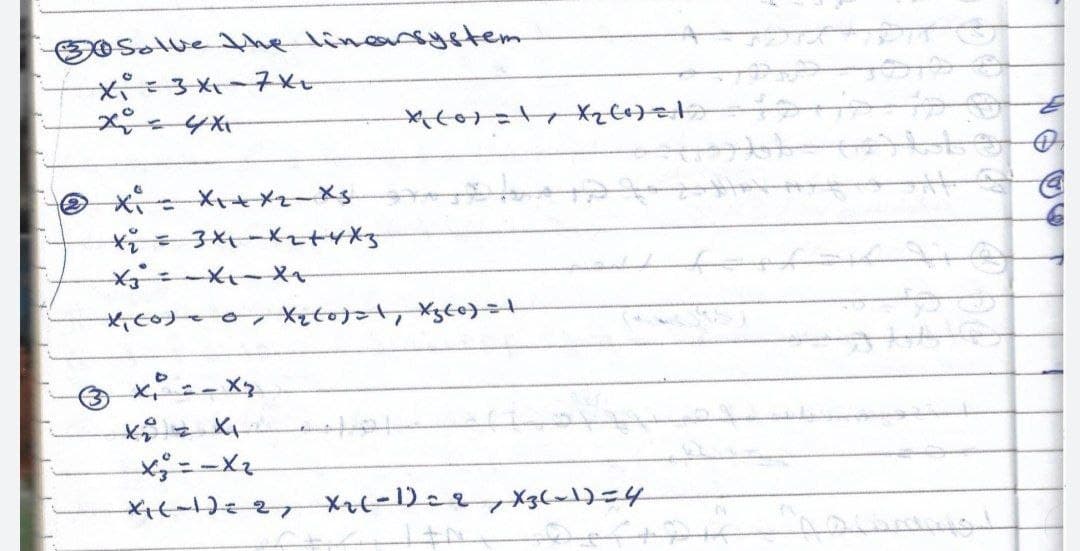 ③ ① Solve the linear system
ẋ₁ = 3x₁ - 7x₂
ẋ₂ = 4x₁ x₁(0) = 1, x₂(0) = 1
② ẋ₁ = x₁ + x₂ - x₃
ẋ₂ = 3x₁ - x₂ + 4x₃
ẋ₃ = -x₁ - x₂
x₁(0) = 0, x₂(0) = 1, x₃(0) = 1
③ ẋ₁ = -x₃
ẋ₂ = x₁
ẋ₃ = -x₂
x₁(-1) = 2, x₂(-1) = 2, x₃(-1) = 4